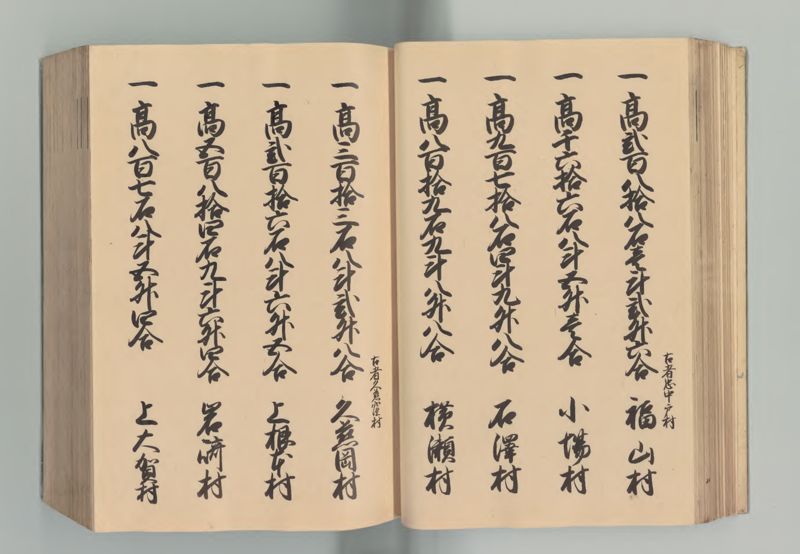 一高弐百八拾八石壱斗弐升六合 福山村
古者 中戸村
一高千六拾六石八斗五升 合 小場村
一高九百七拾八石四斗九升八合 石澤村
一高八百拾九石九斗八升八合 横瀬村
一高三百拾三石八斗弐升八合 久慈岡村
古者久慈窪村
一高弐百拾六石八斗六升五合 上根本村
一高五百八拾四石九斗六升四合 岩崎村
一高八百七石八斗五升四合 上大賀村